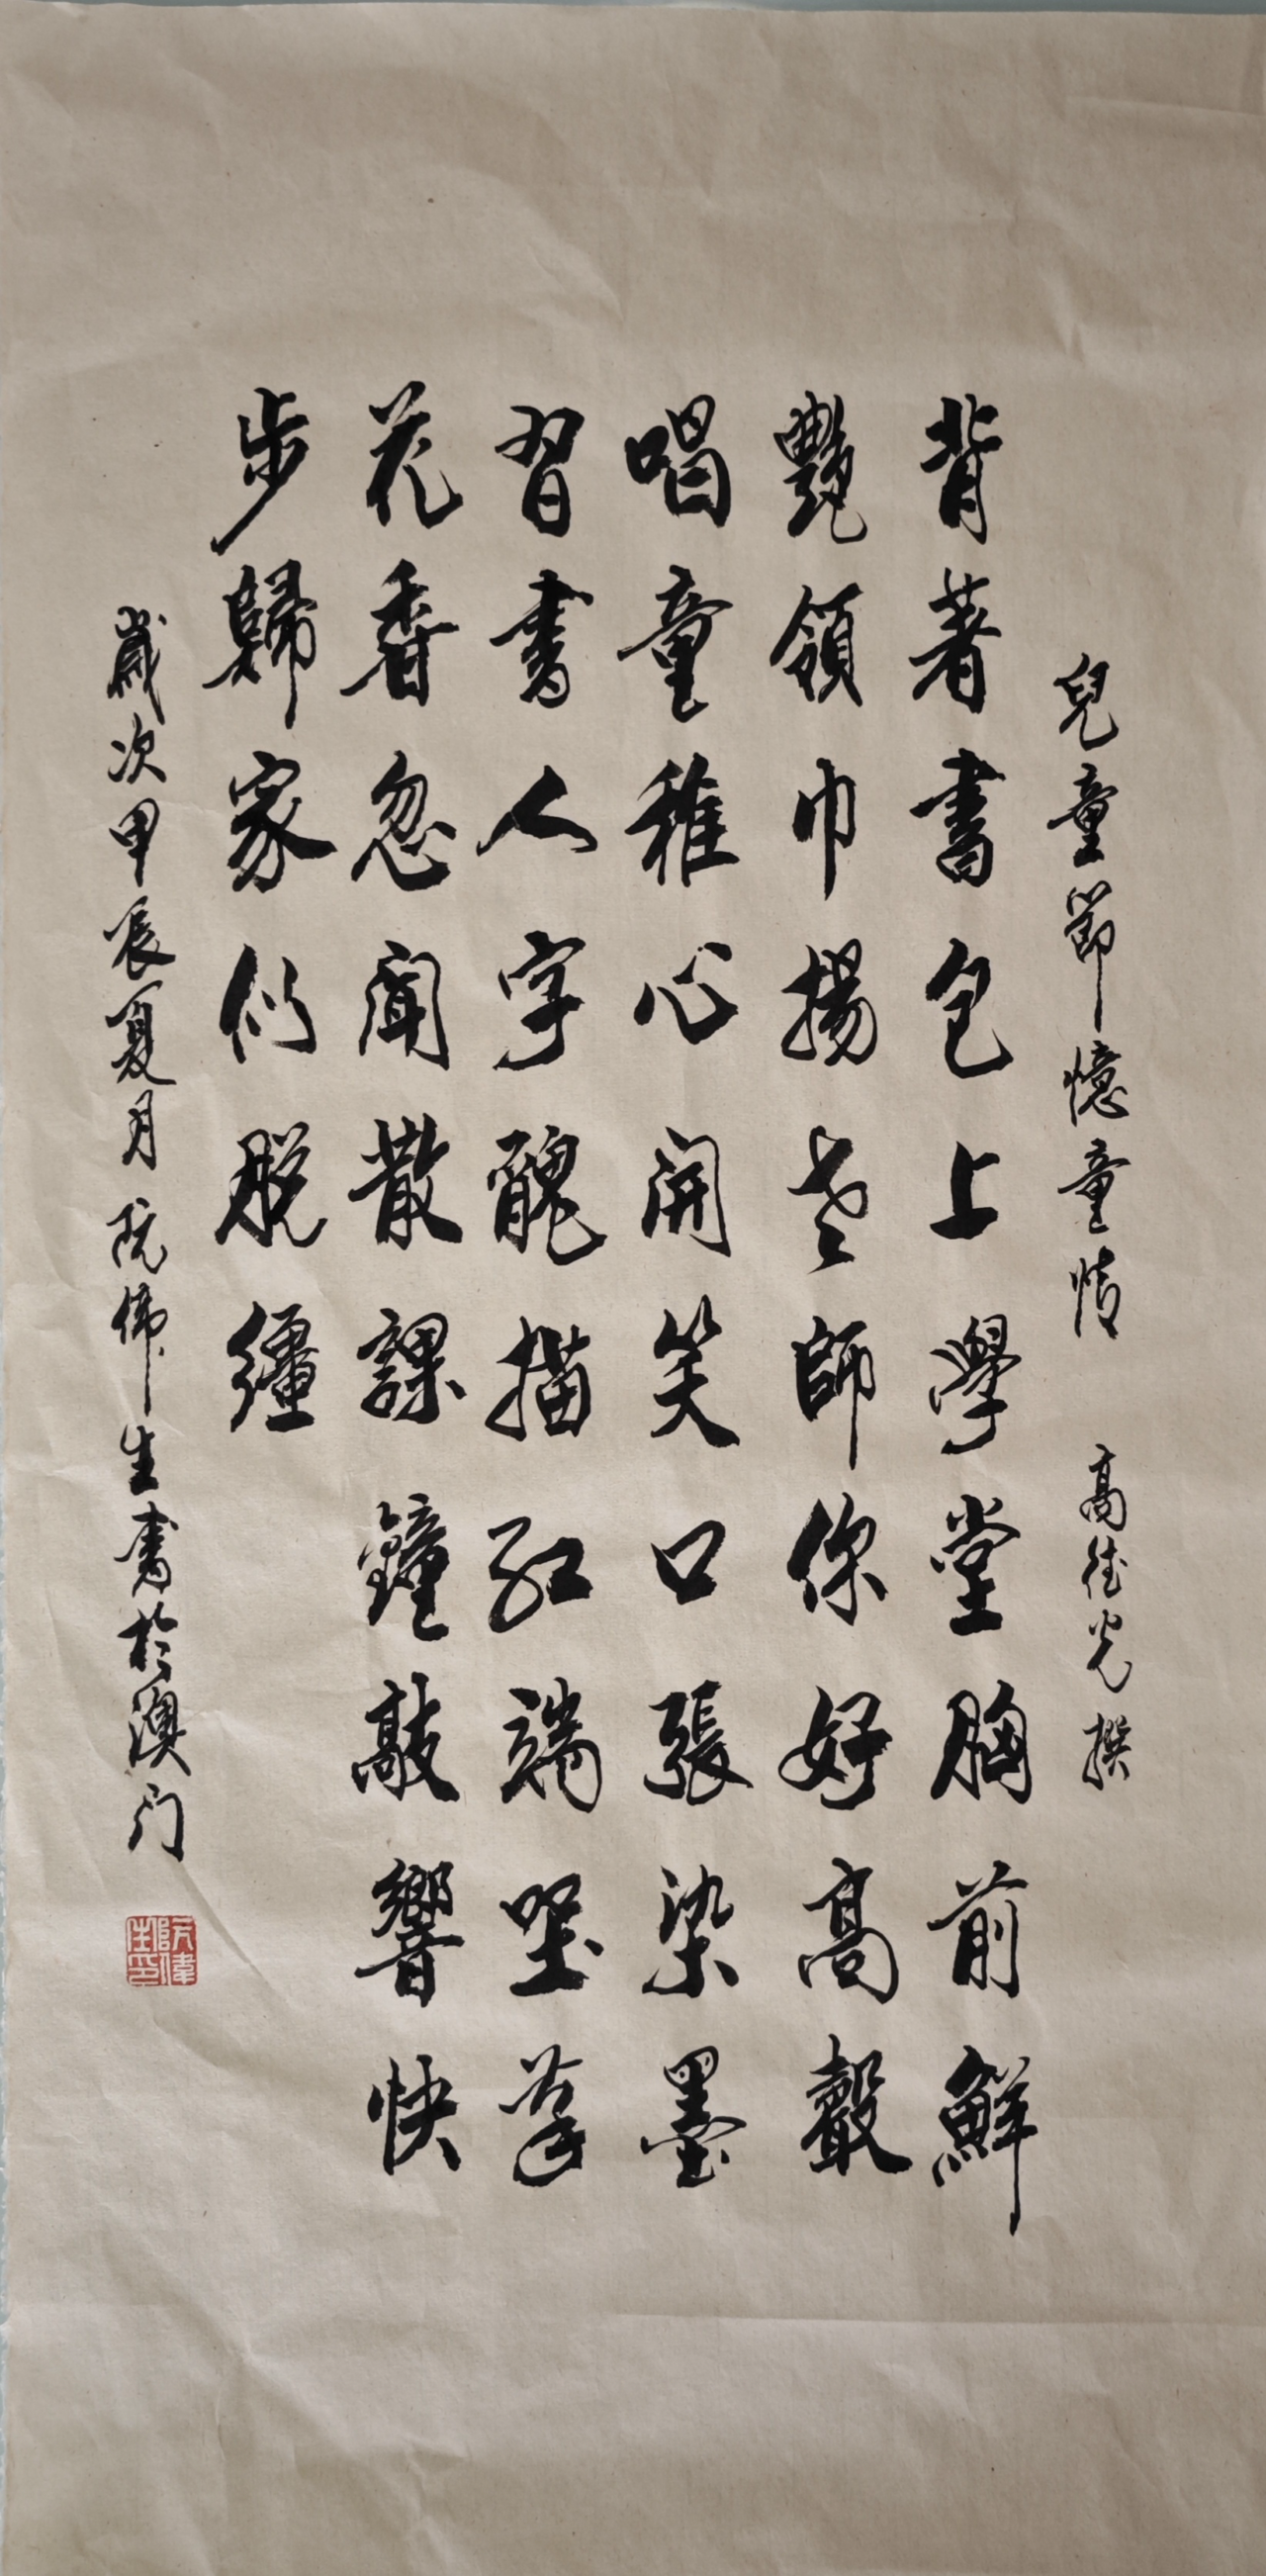 兒童節憶童情 高德光撰
背著書包上學堂胸前鮮
艷領巾揚老師你好高聲
唱童稚心開笑口張染墨
習書人字醜描紅端坐筆
花香忽聞散課鐘敲響快
步歸家似脫繮
歲次甲辰夏月阮偉生書於澳门
阮偉生印